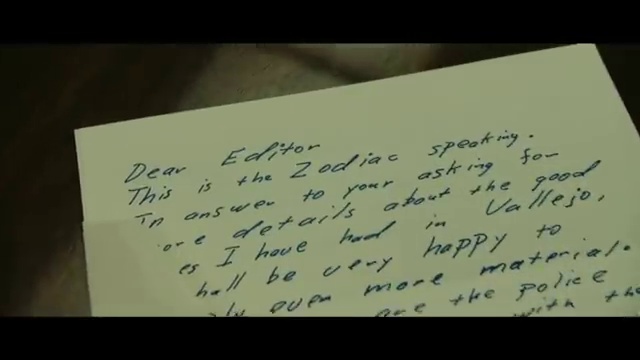 Dear Editor
This is the Zodiac speaking.
In answer to your asking for
ore details about the good
es I have had in Vallejo,
hall be very happy to
ly even more material.
are the police
with the